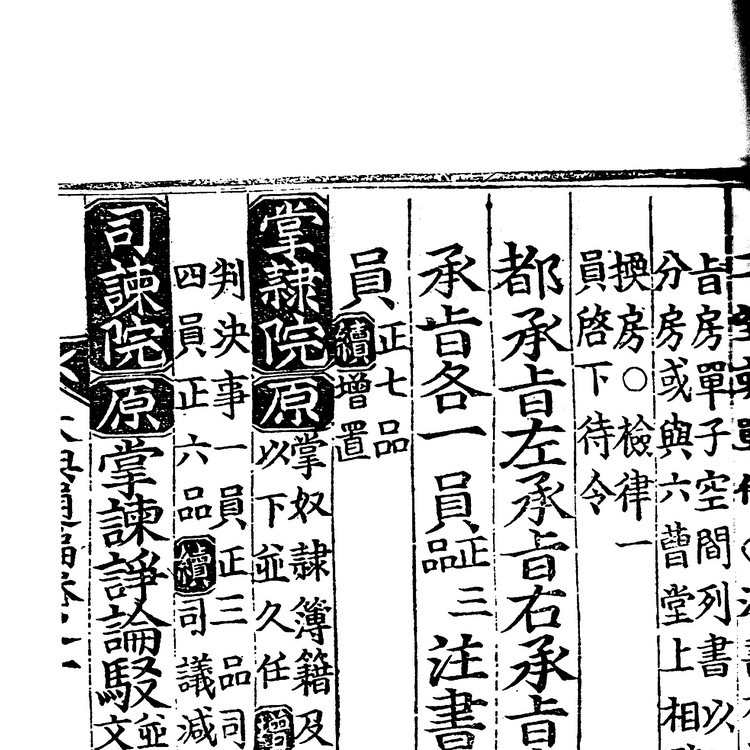 㫖房單子空間列書以
分房或與六曹堂上相
換房○檢律一
員啓下待令
都承㫖左承㫖右承㫖
承㫖各一員正三品注書
員正七品續增置
掌隷院原掌奴隷簿籍及
以下並久任增
判決事一員正三品司
四員正六品續司議減
司諫院原掌諫諍論駁並文